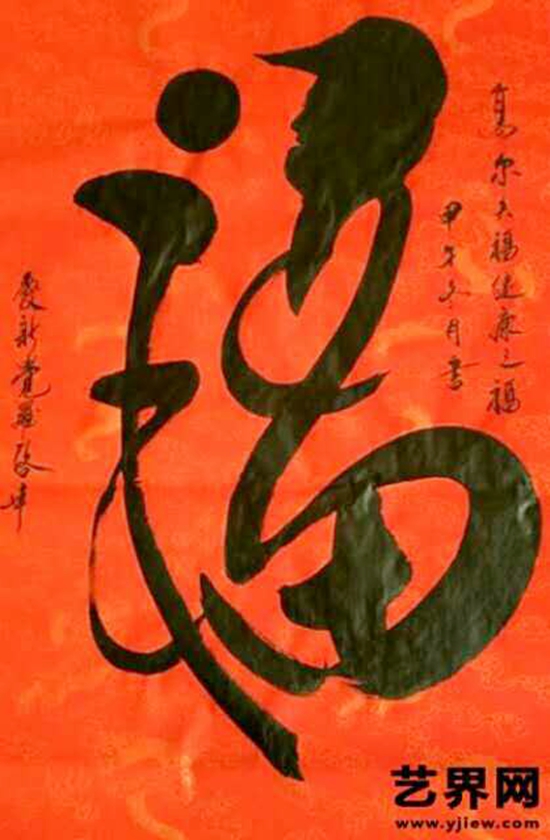 福
高尔夫福健康之福
甲午冬月書
愛新覺羅
艺界网
www.yjiew.com